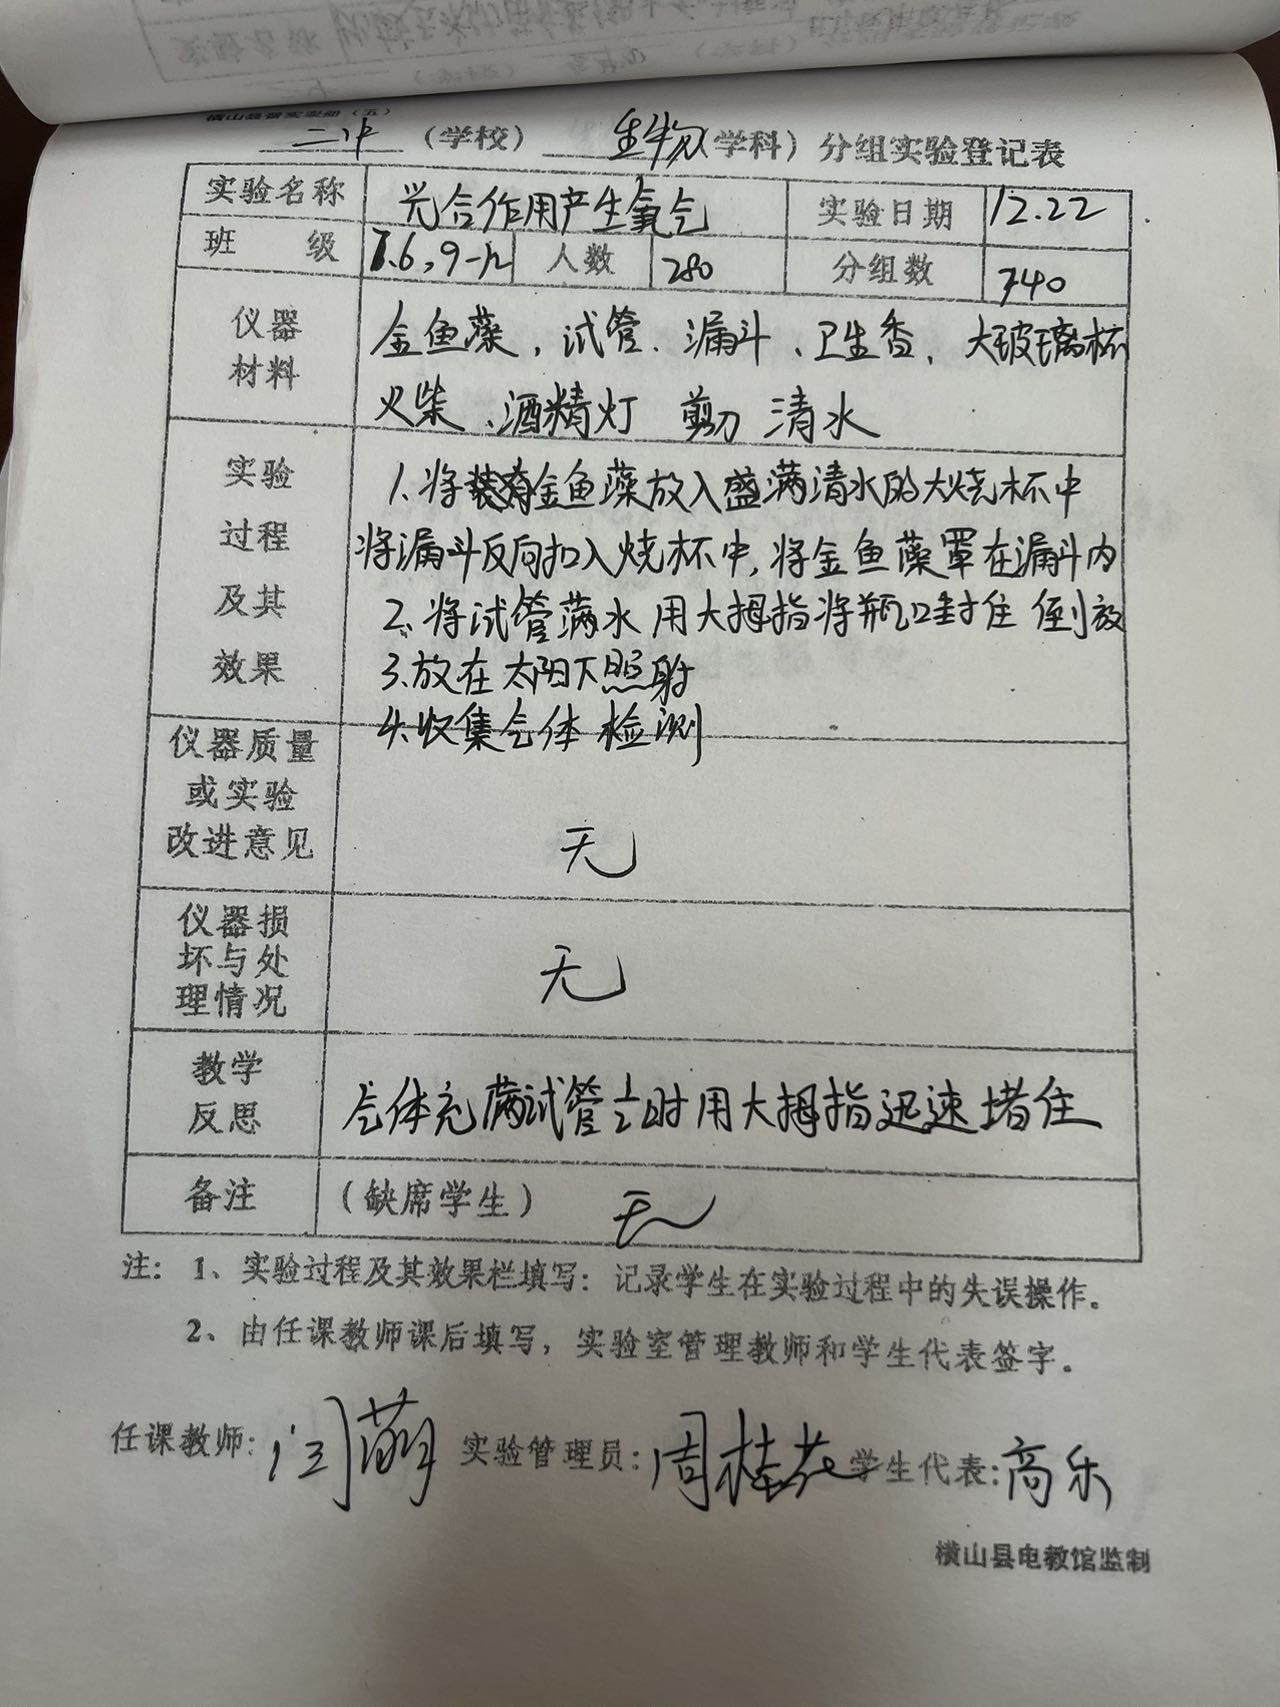 二中（学校） 生物（学科）分组实验登记表
实验名称 光合作用产生氧气 实验日期 12.22
班级 人数 280 分组数
仪器材料 金鱼藻，试管、漏斗、卫生香，大玻璃杯
火柴、酒精灯 剪刀 清水
实验过程及其效果
1、将装有金鱼藻放入盛满清水的大烧杯中
将漏斗反向扣入烧杯中，将金鱼藻罩在漏斗内
2、将试管满水 用大拇指将瓶口封住 倒放
3、放在太阳下照射
4、收集气体 检测
仪器质量或实验改进意见 无
仪器损坏与处理情况 无
教学反思 气体充满试管时用大拇指迅速堵住
备注 （缺席学生） 无
注：1、实验过程及其效果栏填写：记录学生在实验过程中的失误操作。
2、由任课教师课后填写，实验室管理教师和学生代表签字。
任课教师：闫萌 实验管理员：周桂花 学生代表：高乐
横山县电教馆监制